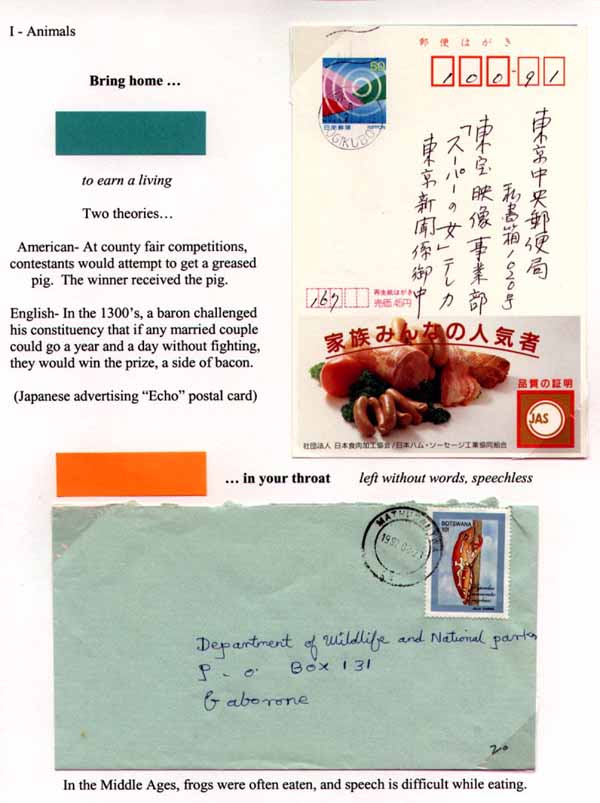 I - Animals
Bring home …
to earn a living
Two theories…
American- At county fair competitions,
contestants would attempt to get a greased
pig.  The winner received the pig.
English- In the 1300's, a baron challenged
his constituency that if any married couple
could go a year and a day without fighting,
they would win the prize, a side of bacon.
(Japanese advertising "Echo" postal card)
郵便はがき
100-91
50
日本郵便 NIPPON
東京中央郵便局
私書箱1020号
東宝映像事業部
「スーパーの女」テレカ
東京新聞係御中
167
再生紙はがき
売価45円
家族みんなの人気者
品質の証明
JAS
社団法人 日本食肉加工協会/日本ハム・ソーセージ工業協同組合
… in your throat
left without words, speechless
BOTSWANA
10t
Department of Wildlife and National parks
P.O. BOX 131
Gaborone
20
In the Middle Ages, frogs were often eaten, and speech is difficult while eating.